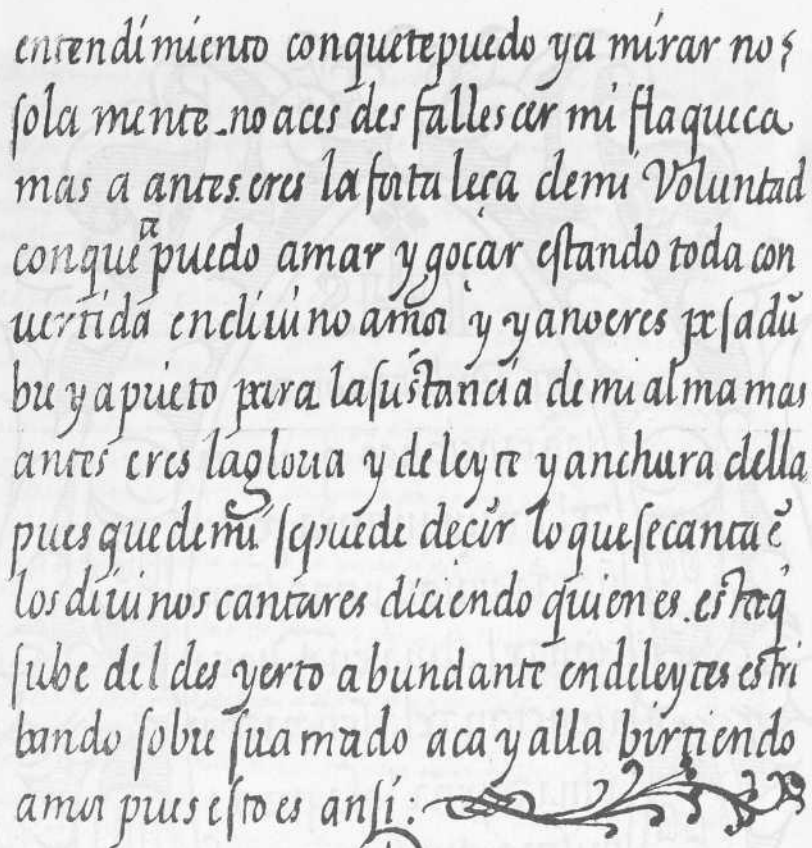 entendimiento conquetepuedo ya mirar no
sola mente no aces des falles cer mi flaqueca
mas a antes. eres la forta leça demi Voluntad
conque te puedo amar y goçar estando toda con
uertida eneldiuino amor y yanoeres pesadũ
bre y aprieto para la sustancia demi alma mas
antes eres lagloria y deleyte y anchura della
pues quedemi sepuede decir lo quesecanta ẽ
los diuinos cantares diciendo quien es. esta q̃
sube del des yerto abundante endeleytes estri
bando sobre suamado aca y alla birtiendo
amor pues esto es ansi: